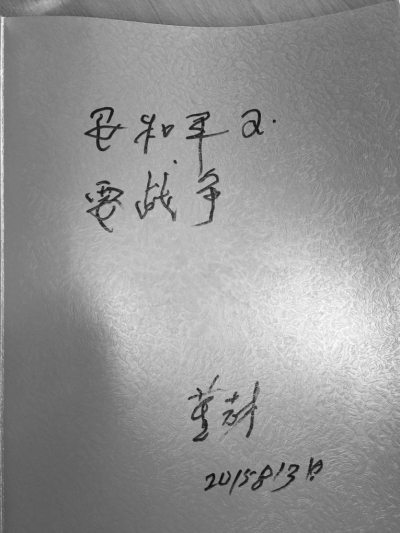 要和平不
要战争
董
2015813日